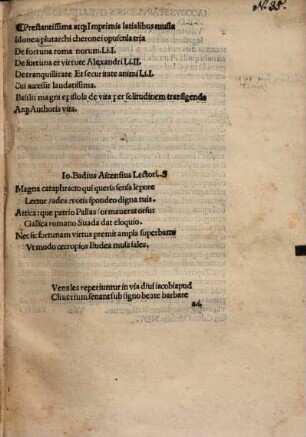 Nº. 35.
Prestantissima atq; Imprimis latialibus musis
idonea plutarchi cheronei opuscula tria
De fortuna roma norum. Li.I.
De fortuna et virtute Alexandri Li.II.
De tranquillitate Et securitate animi Li.I.
Cui accessit laudatissima.
Basilii magni epistola de vita per solitudinem transigenda
Aug. Authoris vita.
Io. Badius Ascensius Lectori. S
Magna cataphracto qui queris sensa lepore
Lector, rudes uotis spondeo digna tuis.
Attica: que patrio Pallas formauerat orsu:
Gallica romano Suada dat eloquio.
Nec sic fortunam virtus premit ampla superbam
Ut modo cecropios Budea musa sales.
Venales reperiuntur in via diui iacobi apud
Oliuerium senant sub signo beate barbare
a.i.